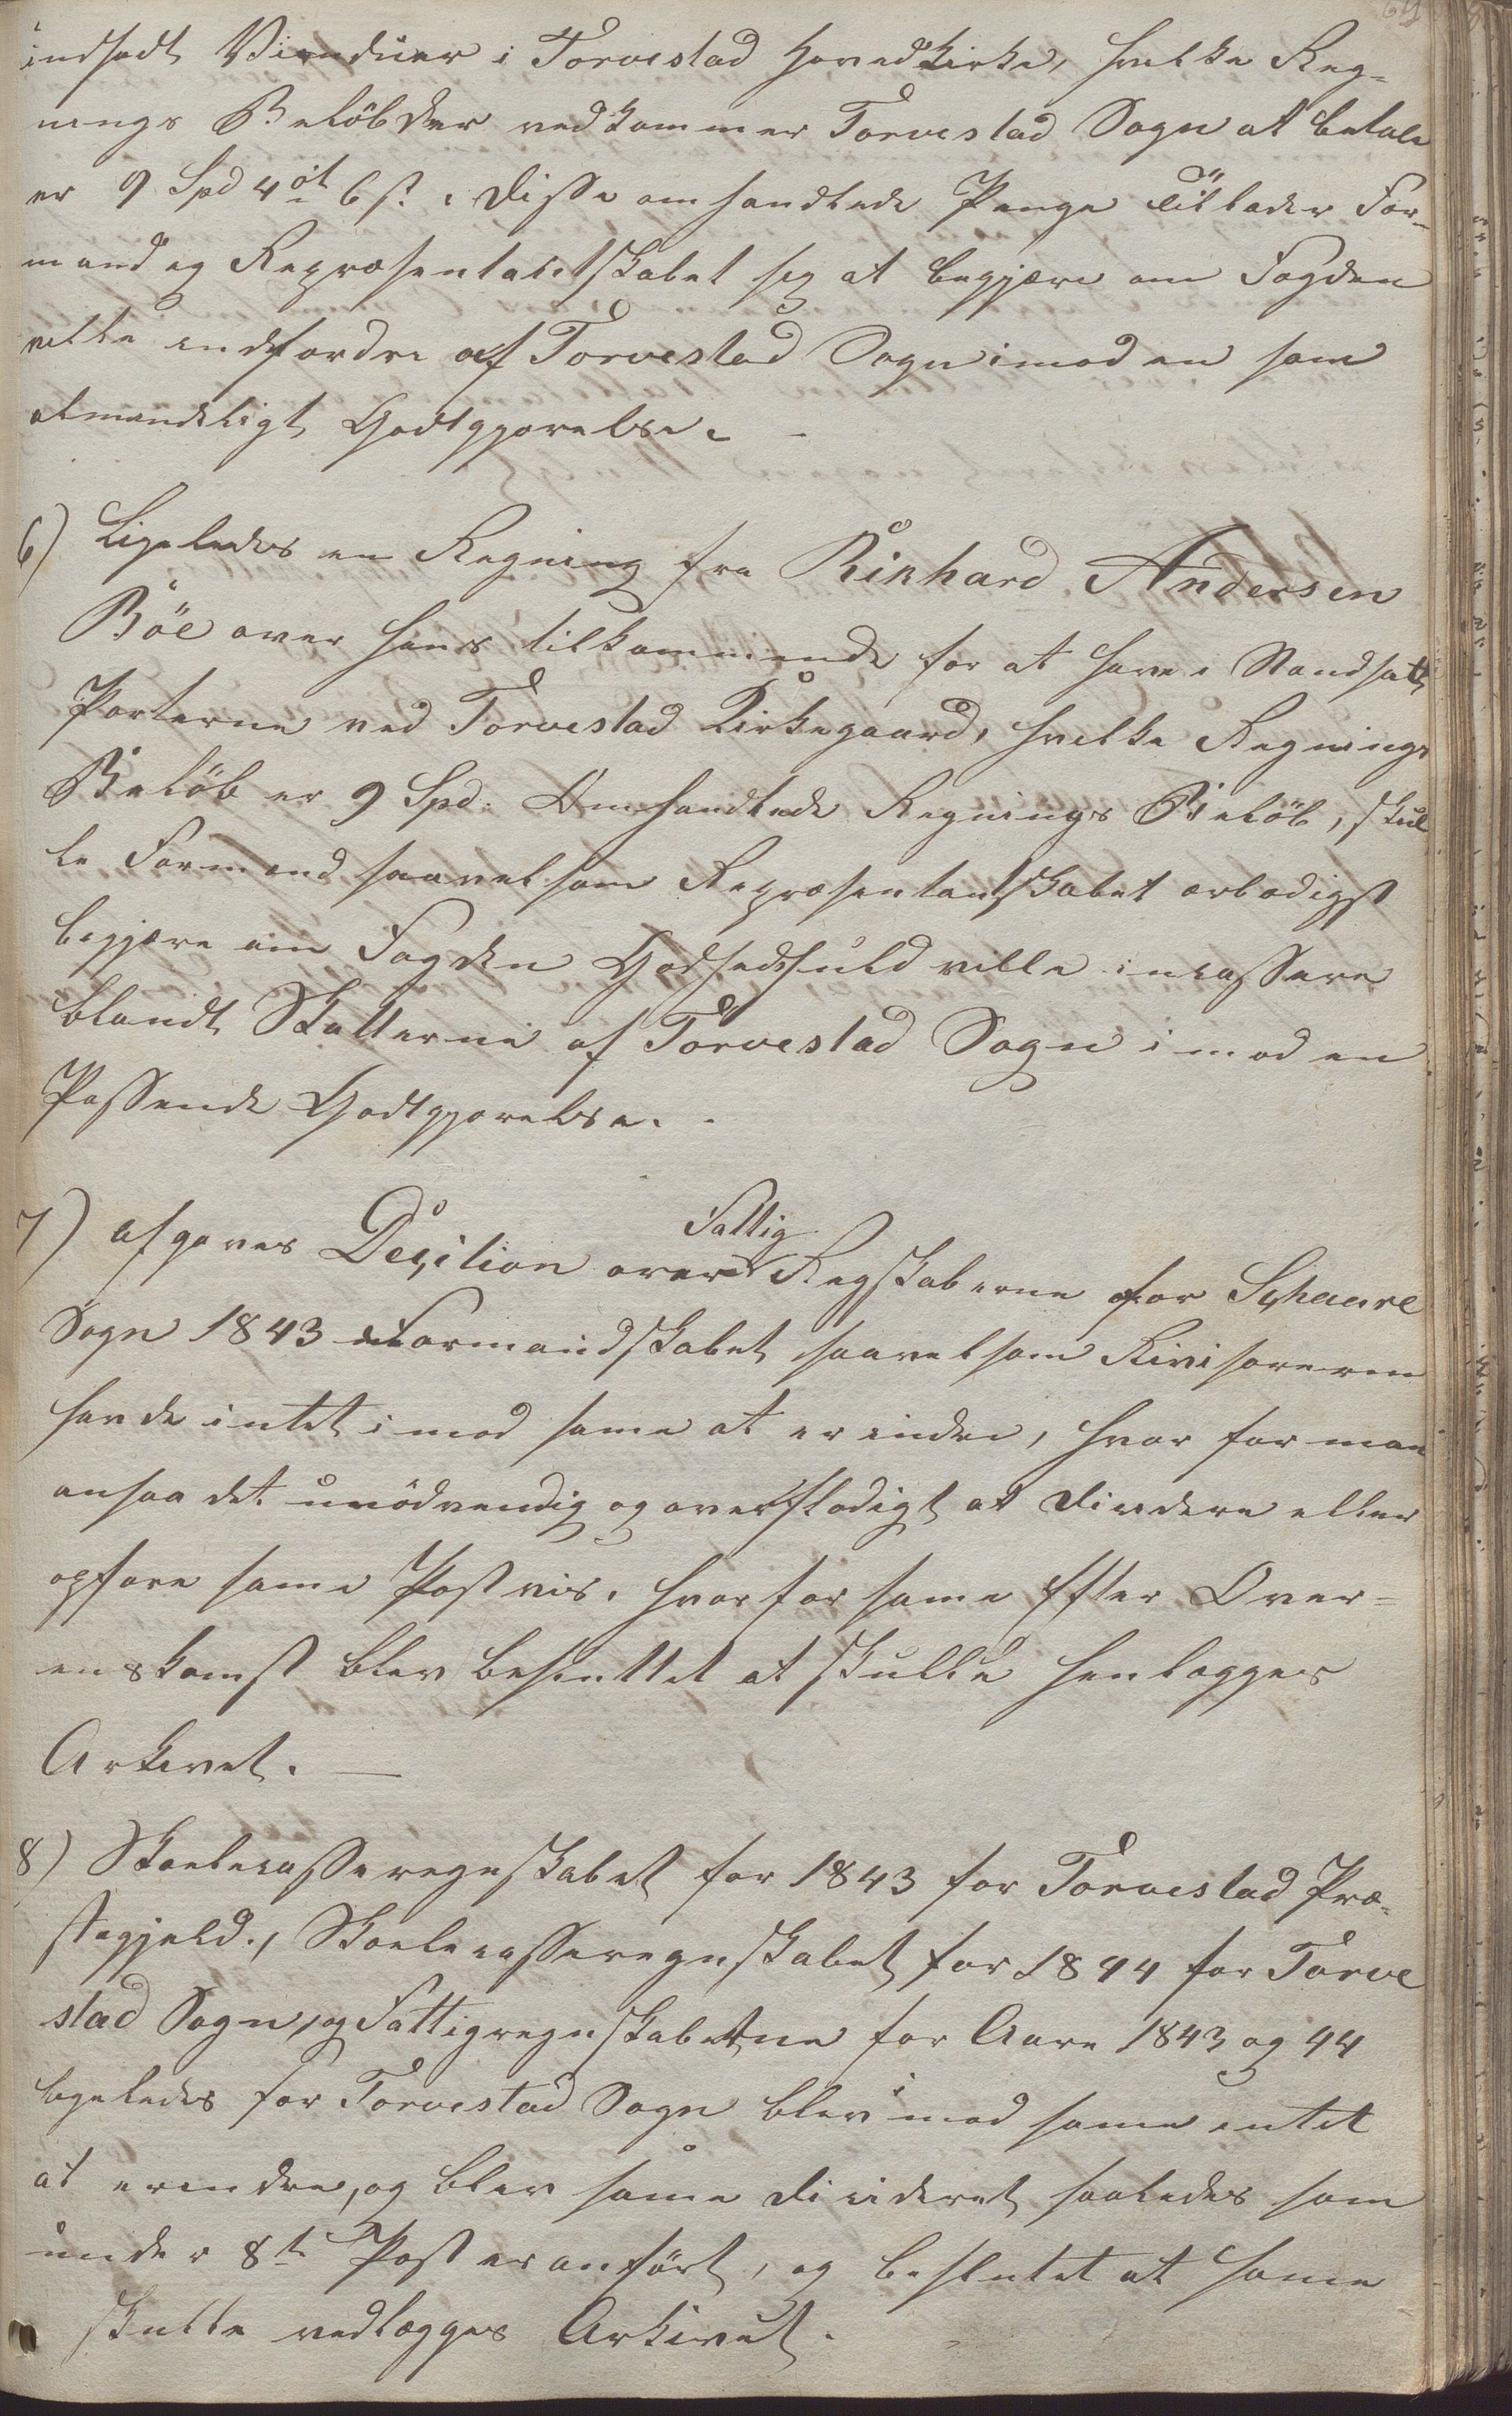 69
indsadt Vinduer i Torvestad Hovedkirke, hvilke Reg-
nings Beløb der vedkommer Torvestad Sogn at betale
er 9 Spd 4 ort 6 s. Disse omhandlede Penge tillader For-
mand og Repræsentantskabet sig at begjære om Fogden
vilde indfordre af Torvestad Sogn imod en som
almindeligt Godtgjørelse. -
6) Ligeledes en Regning fra Rikhard Andersen
Böe over hans tilkommende for at have i Standsatt
Porterne ved Torvestad Kirkegaard, hvilke Regnings
Belöb er 9 Spd. Omhandlede Regnings Belöb, skul
le Formand saavelsom Repræsentantskabet ærbødigst
begjære om Fogden Godhedsfuld ville incassere
blandt Skatterne af Torvestad Sogn imod en
Passende Godtgjørelse. -
Fattig
7) afgaves Decition over Regskaberne for Schaare
Sogn 1843 Formandskabet saavelsom Revisorerne
havde intet imod same at erindre, hvorfor man
ansaa det unödvendig og overflødigt at Decidere eller
opføre same Postvis, hvorfor same Efter Over-
enskomst blev besluttet at skulle henlægges
Arkivet. —
8) Skolecasseregnskabet for 1843 for Torvestad Præ-
stegjeld, Skolecasseregnskabet for 1844 for Torve
stad Sogn, og Fattigregnskaberne for Aare 1843 og 44
ligeledes for Torvestad Sogn blev imod same intet
at erindre, og blev same decideret saaledes som
under 8de Post er anfört, og besluttet at same
skulle vedlægges Arkivet.